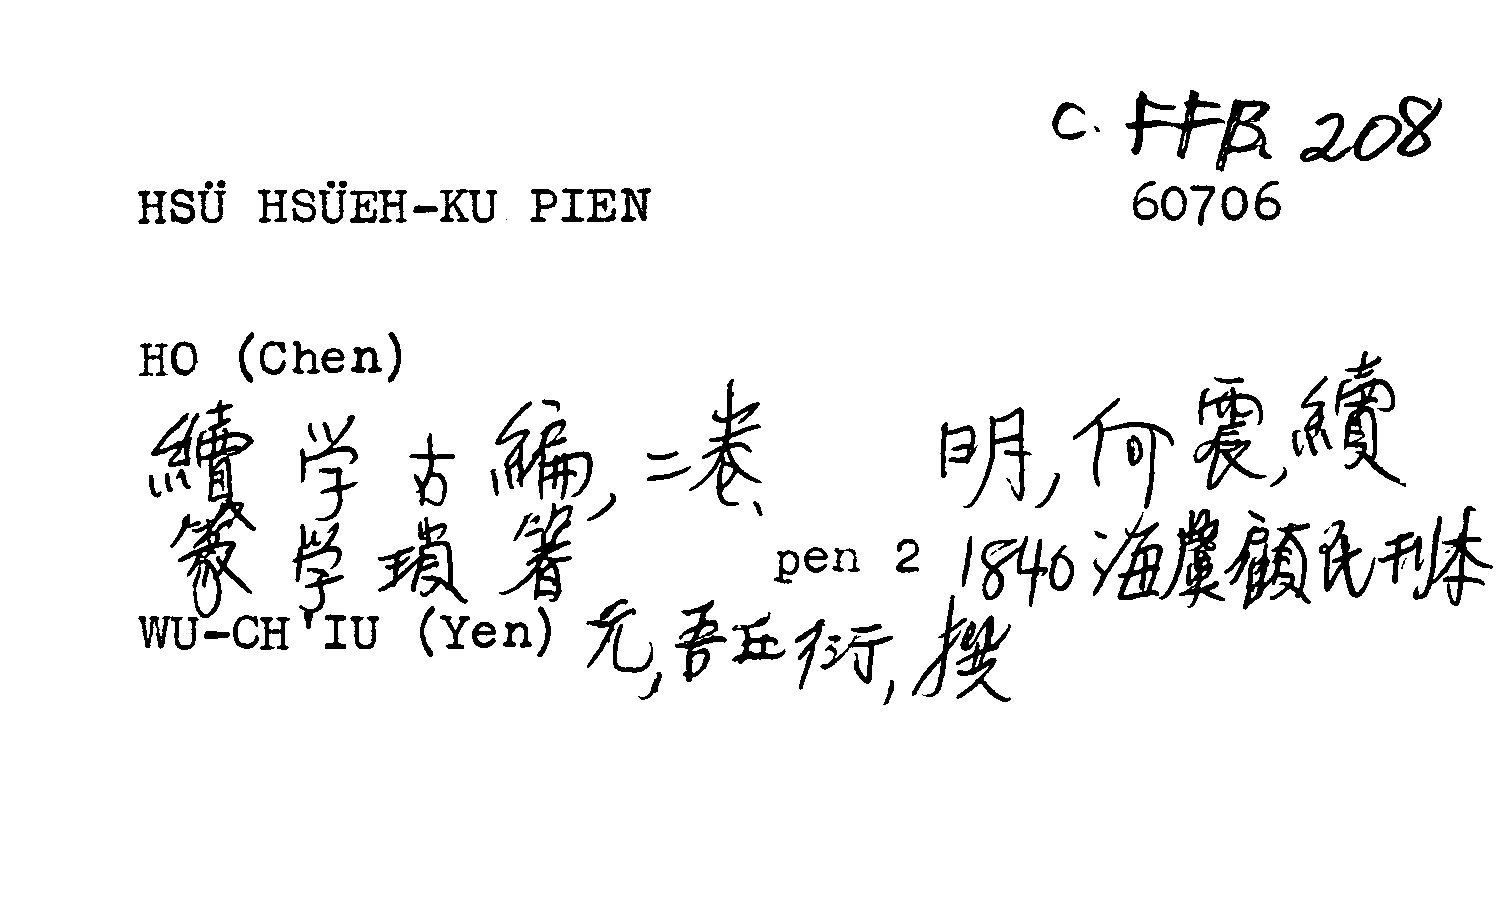 C. FFB 208
HSÜ HSÜEH-KU PIEN 60706
HO (Chen)
續学古編, 二卷、 明, 何震, 續
篆学瑣著 pen 2 1840 海虞顧氏刊本
WU-CH'IU (Yen) 元, 吾丘衍, 撰